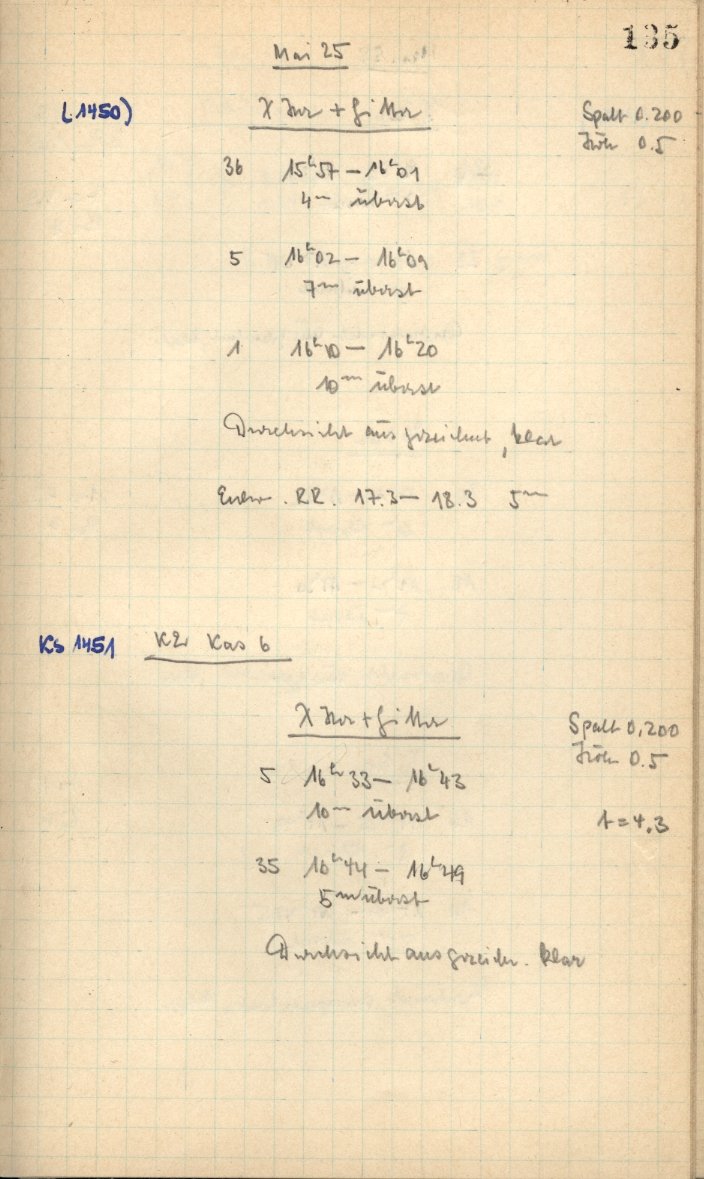 135
Mai 25
(1450)
X + Gitter
Spalt 0.200
Höh 0.5
36 15h57 — 16h01
4m überst
5 16h02 — 16h09
7m überst
1 16h10 — 16h20
10m überst
Durchsicht ausgezeichnet, klar
Entw. RR. 17.3 — 18.3 5m
KS 1451
Kas 6
X + Gitter
Spalt 0,200
Höh 0.5
5 16h33 — 16h43
10m überst
t = 4.3
35 16h44 — 16h49
5m überst
Durchsicht ausgezeichn. klar